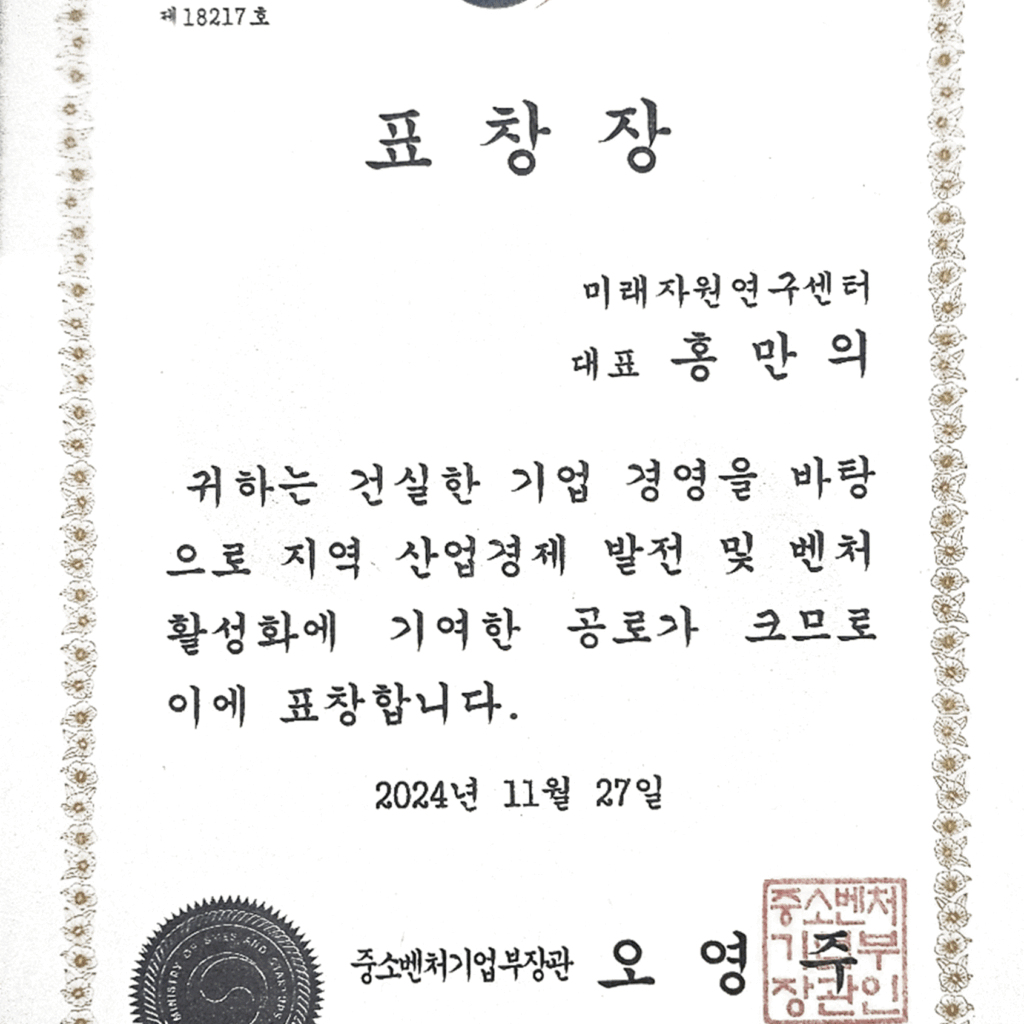 제 18217 호
표 창 장
미래자원연구센터
대표 홍 만 의
귀하는 건실한 기업 경영을 바탕
으로 지역 산업경제 발전 및 벤처
활성화에 기여한 공로가 크므로
이에 표창합니다.
2024년 11월 27일
중소벤처기업부장관 오 영 주
중소벤처
기업부
장관인
MINISTRY OF SMES AND STARTUPS